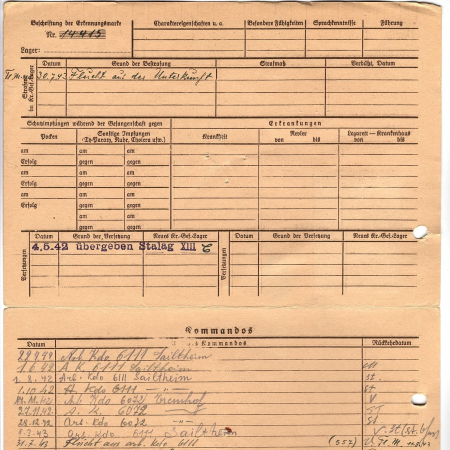 Beschriftung der Erkennungsmarke
Nr. 14415
Lager:
Charaktereigenschaften u. a.
Besondere Fähigkeiten
Sprachkenntnisse
Führung
Strafen im Kr.-Gef.-Lager
Datum Grund der Bestrafung Strafmaß Verbüßt, Datum
30.7.43 Flucht aus der Unterkunft
Schutzimpfungen während der Gefangenschaft gegen
Erkrankungen
Pocken
Sonstige Impfungen
(Ty-Paraty, Ruhr, Cholera usw.)
Krankheit
Revier
von bis
Lazarett — Krankenhaus
von bis
am am
Erfolg gegen
am am
Erfolg gegen
am am
Erfolg gegen
am
gegen
Versetzungen
Datum Grund der Versetzung Neues Kr.-Gef.-Lager
Versetzungen
Datum Grund der Versetzung Neues Kr.-Gef.-Lager
4.5.42 übergeben Stalag XIII
Kommandos
Datum Kommandos Rückkehrdatum
Kdo 6111 Sailtheim
1.6.42 A.K. 6111 Sailtheim
Arb. Kdo 6111 Sailtheim
1.10.42 A. Kdo 6111
Arb. Kdo 6072
27.11.42 A. K. 6072
28.12.42 Arb. Kdo 6072
Arb. Kdo 6111 Sailtheim
31.7.43 Flucht aus arb. Kdo 6111 (557)